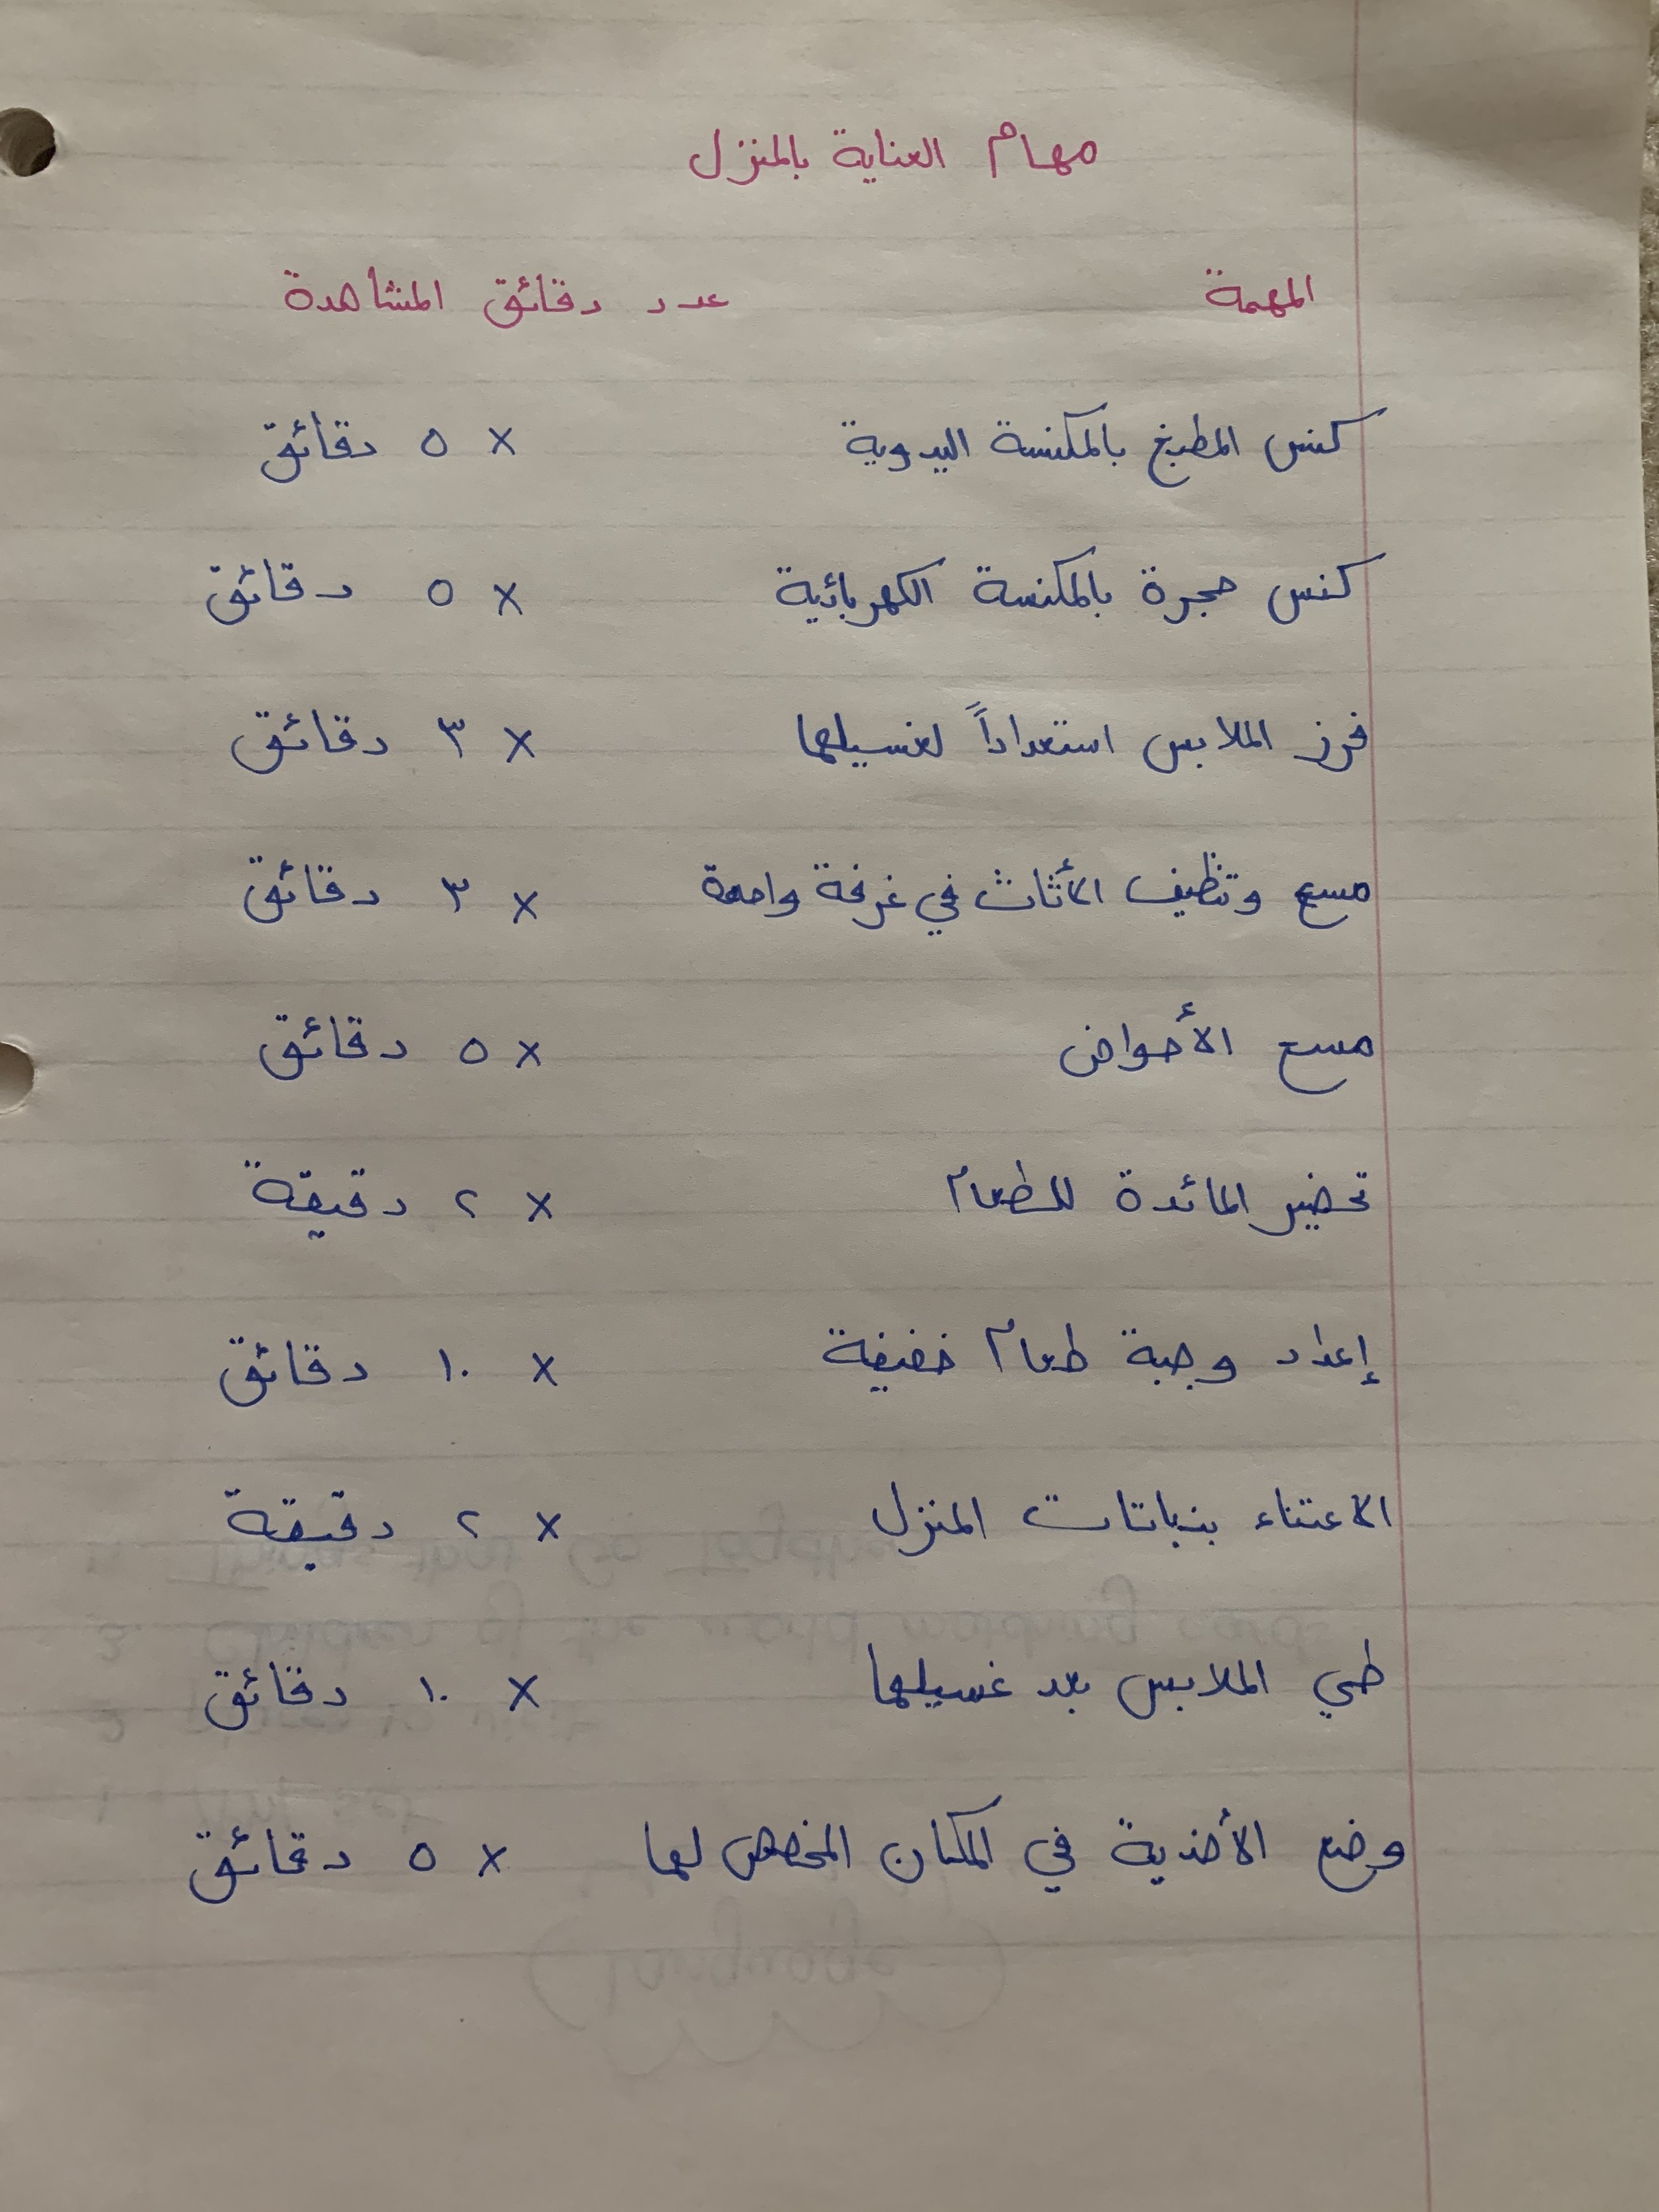 مهام العناية بالمنزل
المهمة عدد دقائق المشاهدة
كنس المطبخ بالمكنسة اليدوية × ٥ دقائق
كنس حجرة بالمكنسة الكهربائية × ٥ دقائق
فرز الملابس استعداداً لغسيلها × ٣ دقائق
مسح وتنظيف الأثاث في غرفة واحدة × ٣ دقائق
مسح الأحواض × ٥ دقائق
تحضير المائدة للطعام × ٢ دقيقة
إعداد وجبة طعام خفيفة × ١٠ دقائق
الاعتناء بنباتات المنزل × ٢ دقيقة
طي الملابس بعد غسيلها × ١٠ دقائق
وضع الأحذية في المكان المخصص لها × ٥ دقائق